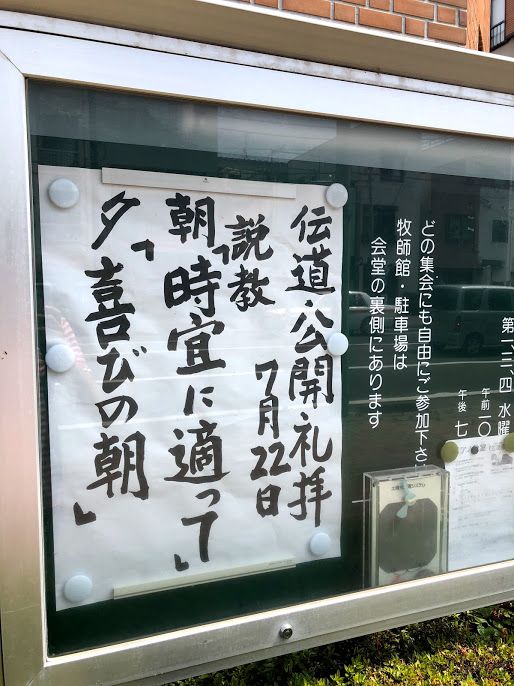 伝道・公開礼拝
説教 7月22日
朝「時宜に適って」
夕「喜びの朝」
どの集会にも自由にご参加下さい
牧師館・駐車場は
会堂の裏側にあります
第一、三、四 水曜
午前 一〇
午後 七